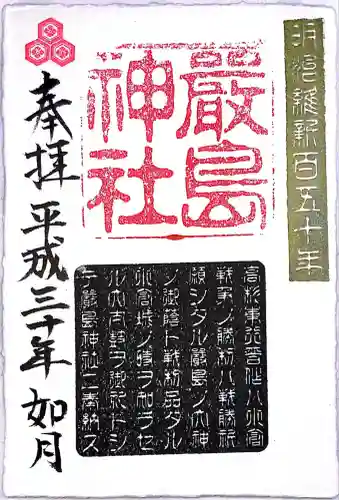 明治維新百五十年
嚴島
神社
奉拝
平成三十年
如月
高杉東行晋作ハ小倉
戦争ノ勝利ハ戦勝祈
願シタル嚴島ノ大神
ノ御蔭ト戦利品タル
小倉城ノ時ヲ知ラセ
ル大太鼓ヲ御礼トシ
テ嚴島神社ニ奉納ス